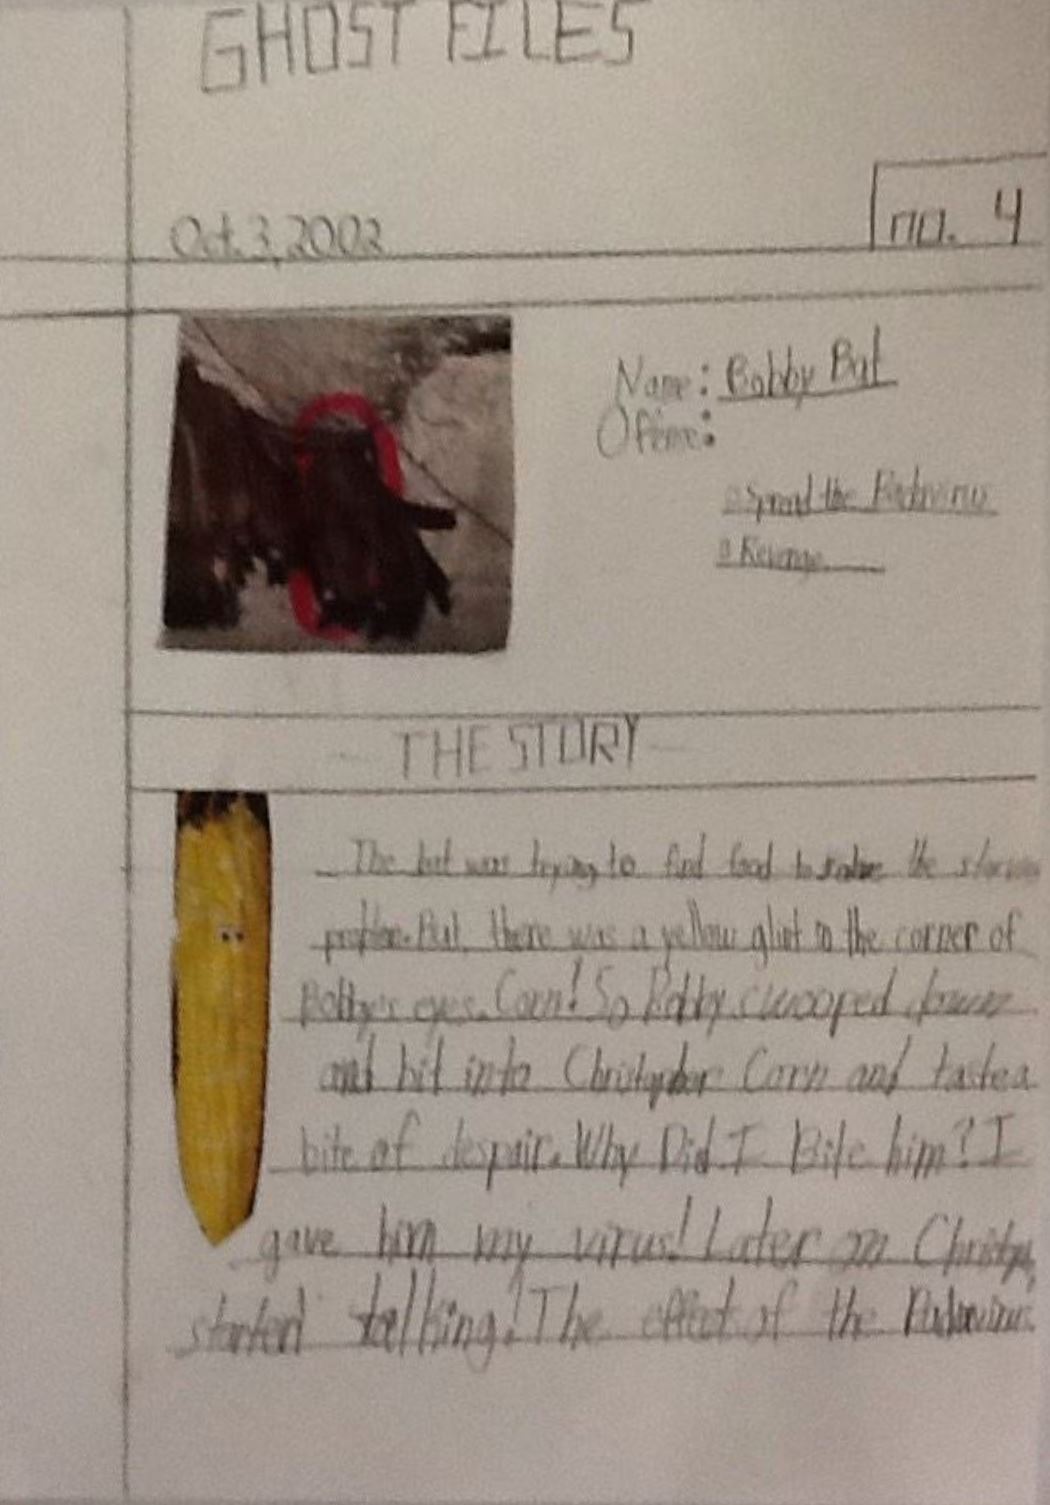 GHOST FILES
Oct. 3, 2002
no. 4
Name: Bobby Bat
Offense:
Spread the
Revenge
THE STORY
The bat was trying to find food to solve the
problem. But, there was a yellow glint in the corner of
Bobby's eyes. Corn! So Bobby swooped down
and bit into Christopher Corn and tasted a
bite of despair. Why Did I Bite him? I
gave him my virus! Later on
started talking! The effect of the